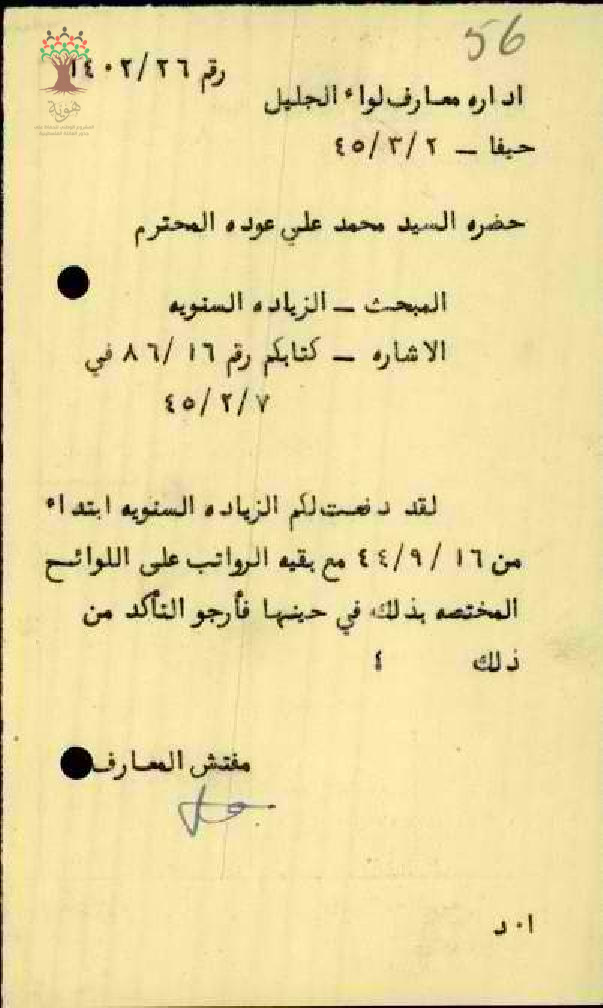 56
رقم ١٤٠٢/٢٦
اداره معارف لواء الجليل
حيفا – ٤٥/٣/٢
حضره السيد محمد علي عوده المحترم
المبحث – الزياده السنويه
الاشاره – كتابكم رقم ٨٦/١٦ في
٤٥/٢/٧
لقد دفعت لكم الزياده السنويه ابتداء
من ٤٤/٩/١٦ مع بقيه الرواتب على اللوائح
المختصه بذلك في حينها فأرجو التأكد من
ذلك ٤
مفتش المعارف
ا٠د
هوية